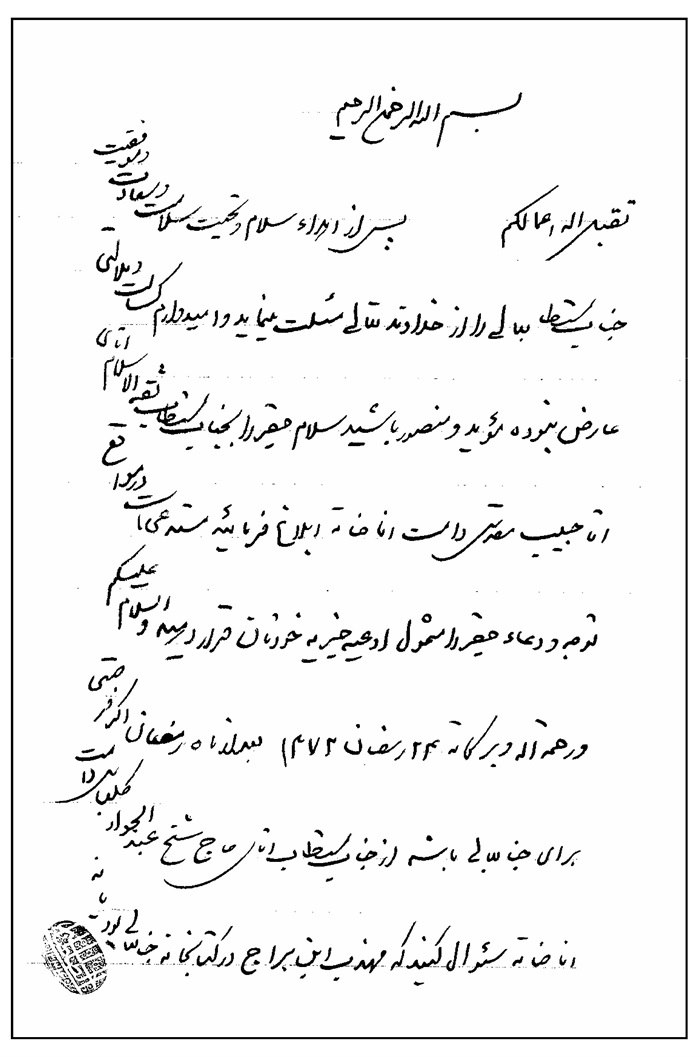 بسم الله الرحمن الرحیم
تقبل الله اعمالکم پس از اهداء سلام و تحیت سلامت و سعادت و موفقیت
جناب مستطاب عالی را از خداوند متعالی مسئلت مینماید و امیدوارم کسالت و ملالتی
عارض ننموده مؤید و منصور باشید سلام حقیر را بجناب مستطاب ثقة الاسلام آقای
آقا حبیب دامت افاضاته ابلاغ فرمائید مستدعی است در مواقع
توجه و دعاء حقیر را مشمول ادعیه خیریه خودتان قرار دهید و السلام علیکم
و رحمة الله و برکاته ۲۴ رمضان ۱۳۷۳ بعد از ماه رمضان اگر فرصتی
برای جنابعالی باشد از جناب مستطاب آقای حاج شیخ عبدالجواد دامت
افاضاته سئوال کنید که مهذب ابن براج در کتابخانه جنابعالی بود یا نه